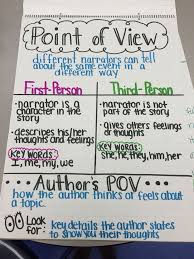 Point of View
different narrators can tell
about the same event in a
different way
First-Person
• narrator is a
character in the
story
• describes his/her
thoughts and feelings
KEY WORDS
I, me, my, we
Third-Person
• narrator is not
part of the story
• gives others feelings
or thoughts
KEY WORDS
she, he, they, him, her
Author's POV
how the author thinks or feels about
a topic.
Look for:
key details the author states
to show you their thoughts